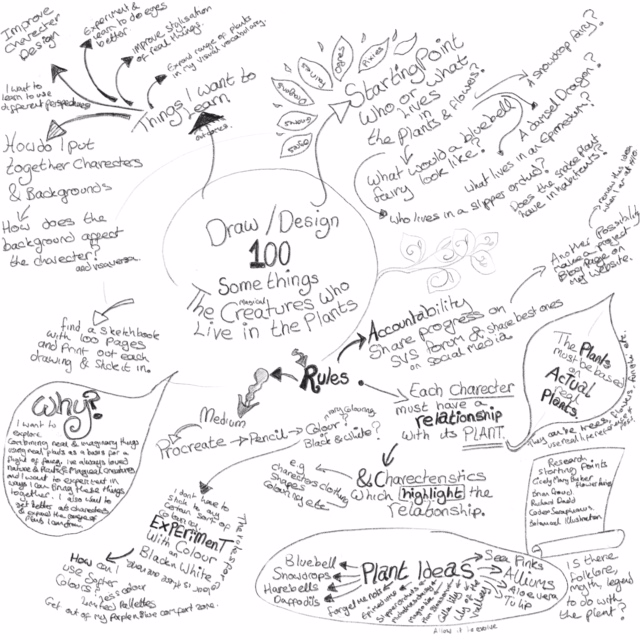 Improve
Charecter
Design
Experiment &
learn to do eyes
better
improve stylisation
of real things.
Expand range of plants
in my visual vocabulary.
I want to
learn to use
different perspectives
Things I want to
Learn
outcomes.
How do I put
together Charecters
& Backgrounds
How does the
background affect
the charecter?
and visaversa.
find a sketchbook
with 100 pages
and print out each
drawing & stick it in.
Draw / Design
100
Some things
The Magical Creatures Who
Live in the Plants
pixies
ogres
fairies
Dragons
Gnomes
Starting Point
Who or what
Lives
in
the Plants & flowers?
A snowdrop fairy?
What would a bluebell
fairy look like?
A tassel Dragon?
What lives in an Epimedium?
Who lives in a slipper orchid?
Does the snake plant
have inhabitours?
Another Possibility
make a project
Blog page on
my website.
renew this idea
Accountability
Share progress on
SVS forum & share best ones
on social media.
Rules
Each Charecter
must have a
relationship
with its PLANT.
The Plants
must be based
on
Actual
real
Plants.
They can be trees, flowers, fungii etc.
use real life references.
& Charecteristics
which highlight the
relationship.
e.g
charecters clothing
shapes
colouring etc
Medium
Procreate
Pencil
Colour?
Black & White?
Why?
I want to
explore
Combining real & imaginary things
using real plants as a basis for a
flight of fancy. I've always loved
Nature & Plants & Magical creatures
and I want to experiment in
ways I can bring these things
together. I also want to
get better at charecters
& expand the range of
plants I can draw.
I don't have to
stick to any
certain sort of
colouring
Therefor
EXPERiMENT
With on Colour
Black n White
How can I
use Softer
Colours?
less colour
limited pallettes
Get out of my comfort zone.
Plant Ideas
Bluebell
Snowdrops
Harebells
Daffodils
Forget me nots
Epimediums
Magnolia
Calla lily
Lily of the
valley
Sea Pinks
Alliums
Aloe vera
Tulip
Allow it to evolve
Research
Starting Points
Cicely Mary Barker
flower fairies
Brian Froud
Richard Dadd
Codex Seraphinus
Botanical Illustration
Is there
folklore,
myth, legend
to do with
the plant?